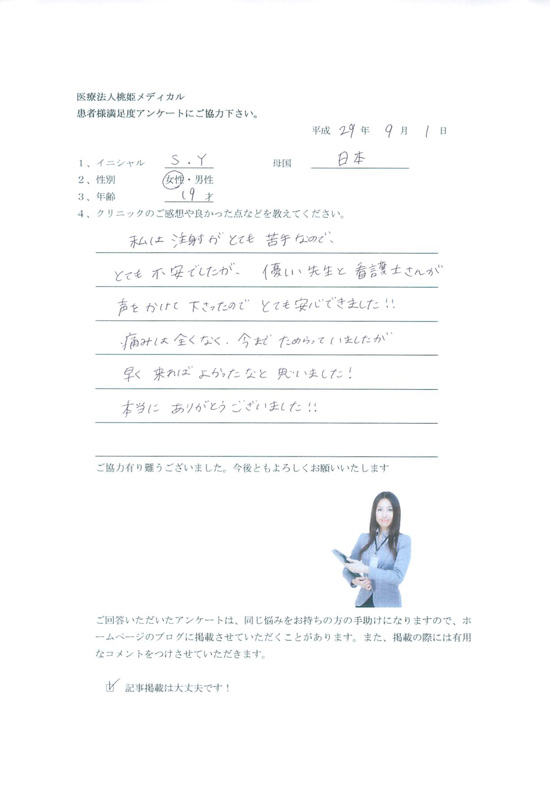 医療法人桃姫メディカル
患者様満足度アンケートにご協力下さい。
平成 29 年 9 月 1 日
1、イニシャル S.Y 母国 日本
2、性別 女性・男性
3、年齢 19 才
4、クリニックのご感想や良かった点などを教えてください。
私は 注射が とても 苦手なので、
とても 不安でしたが、 優しい 先生と 看護士さんが
声を かけて 下さったので とても 安心できました!!
痛みは 全くなく、今まで ためらって いましたが
早く 来れば よかったなと 思いました!
本当に ありがとう ございました!!
ご協力有り難うございました。今後ともよろしくお願いいたします
ご回答いただいたアンケートは、同じ悩みをお持ちの方の手助けになりますので、ホ
ームページのブログに掲載させていただくことがあります。また、掲載の際には有用
なコメントをつけさせていただきます。
☑ 記事掲載は大丈夫です!